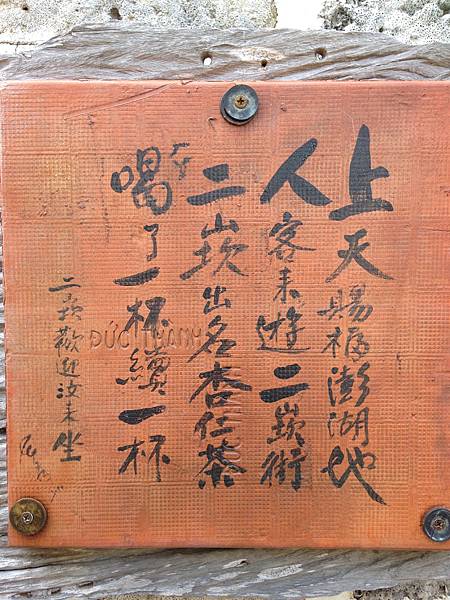 上天賜福澎湖地
人客來遊二崁街
二崁出名杏仁茶
喝了一杯續一杯
二崁歡迎汝來坐
ĐỨC THÀNH